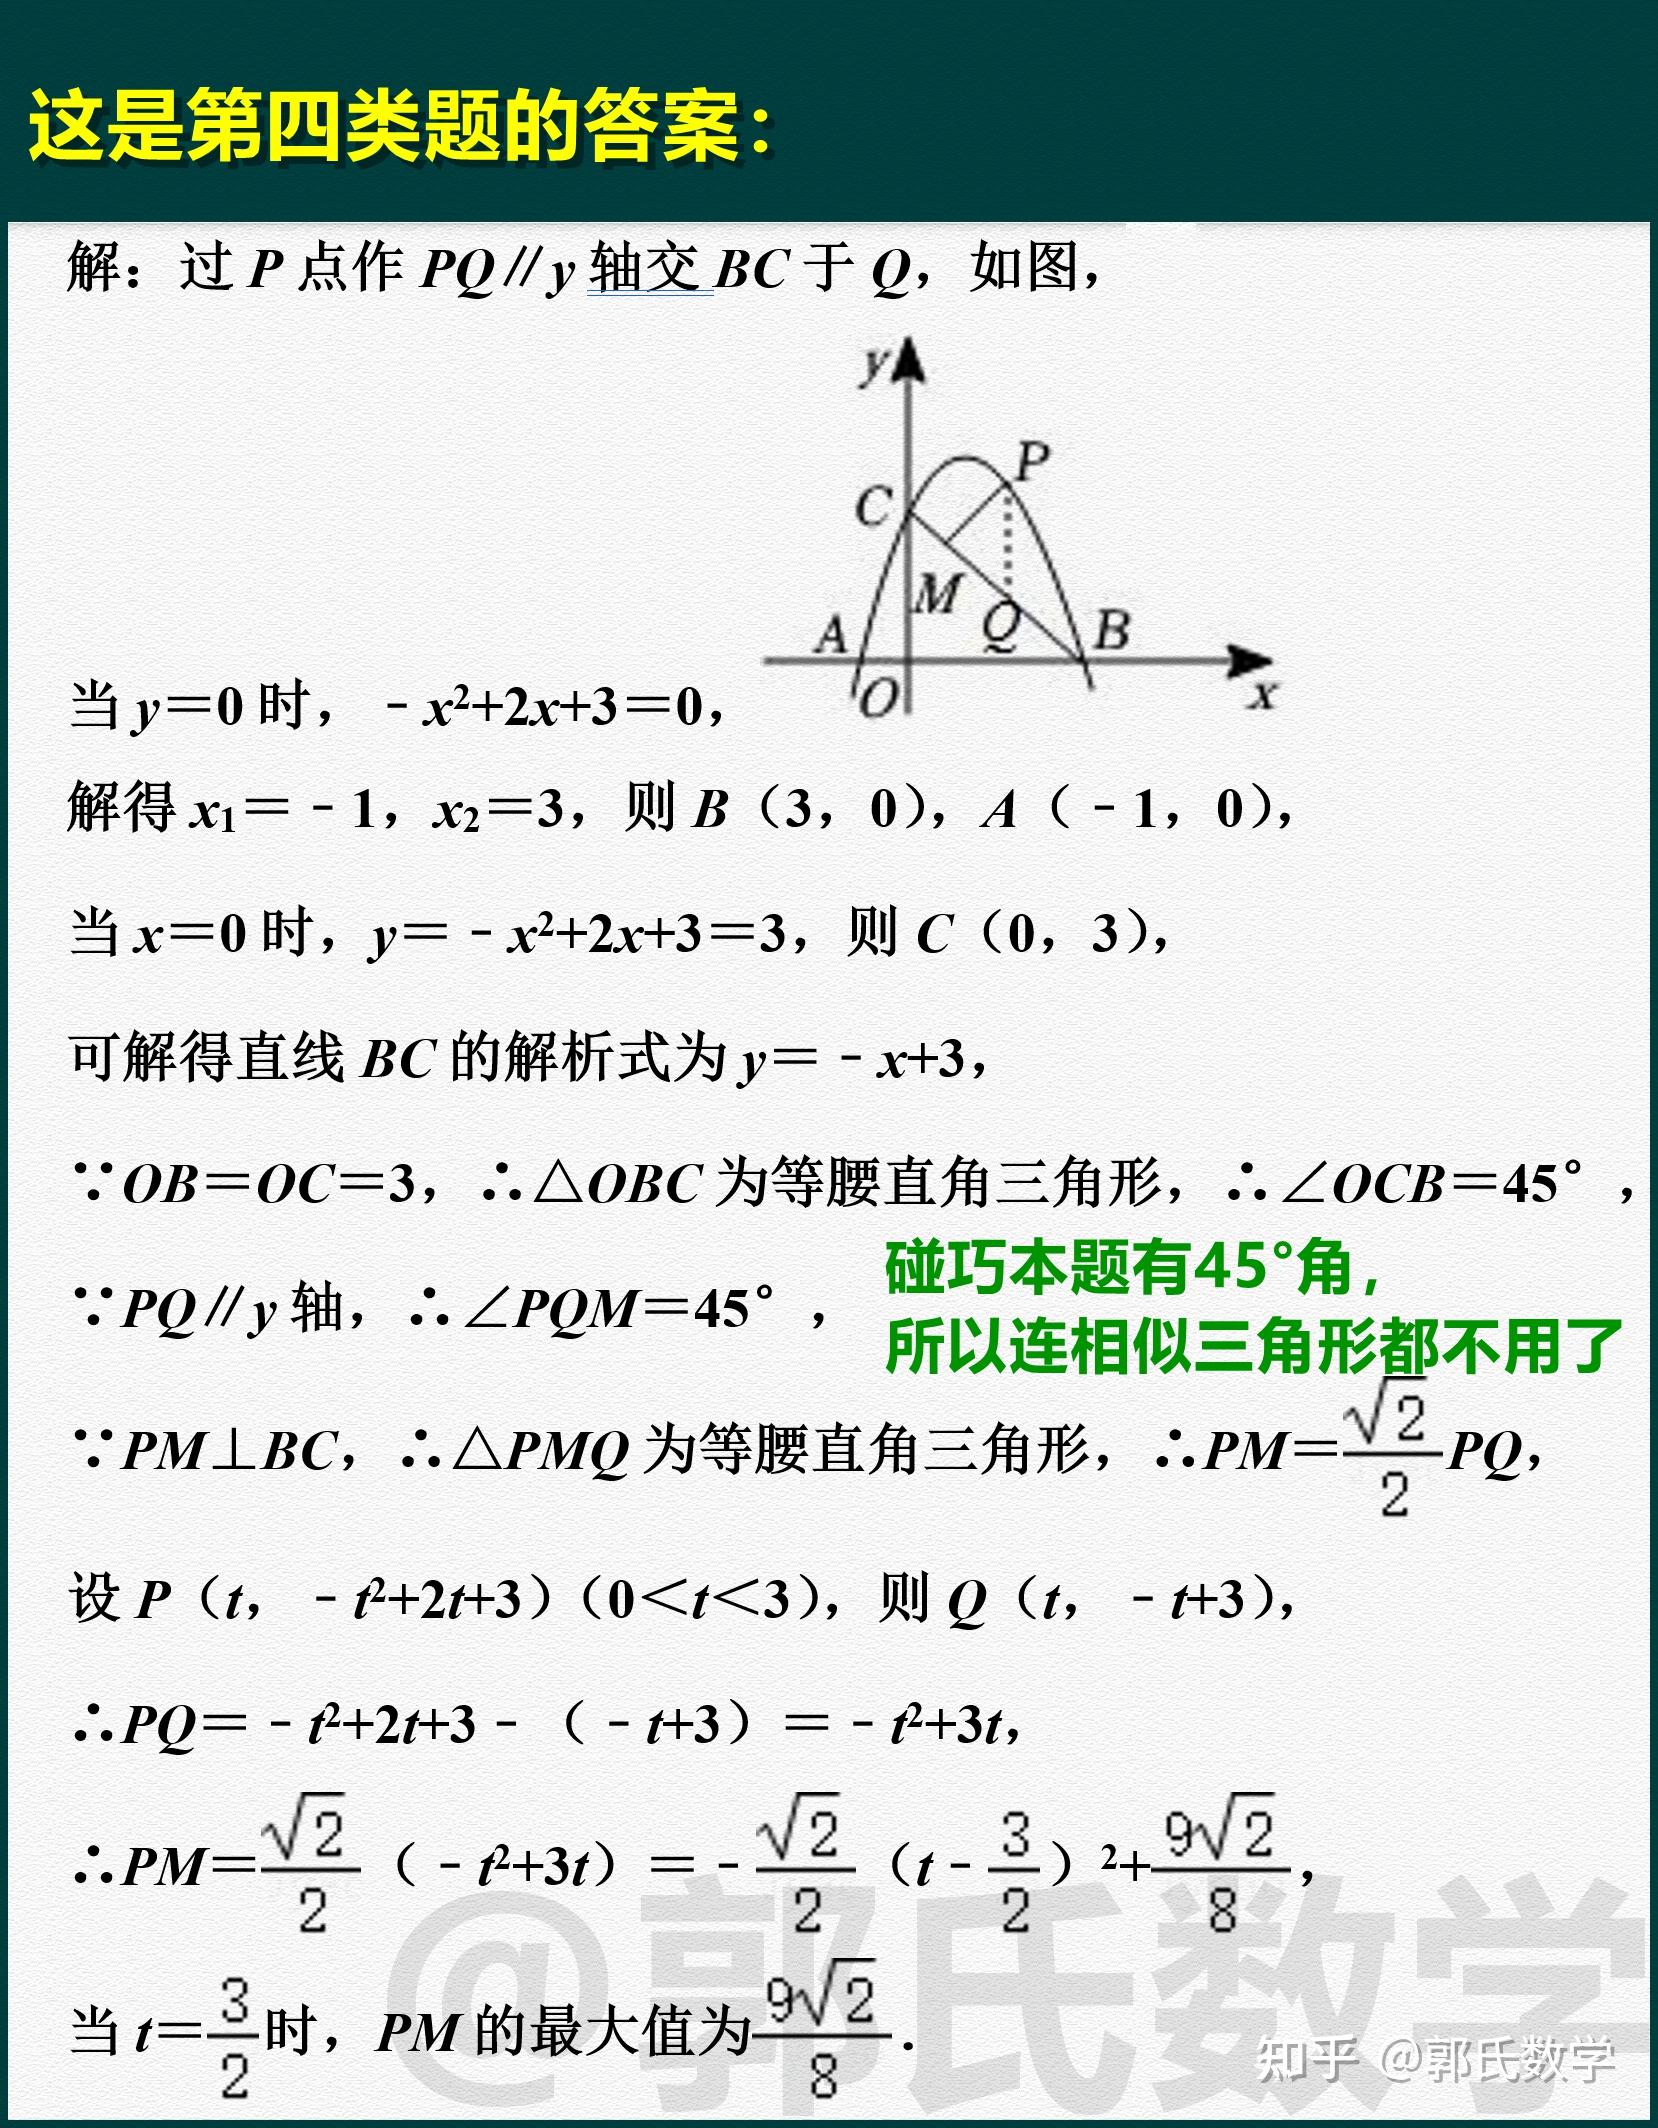 这是第四类题的答案：
解：过 P 点作 PQ∥y 轴交 BC 于 Q，如图，
y
P
C
M
Q
A
B
O
x
当 y＝0 时，﹣x²+2x+3＝0，
解得 x₁＝﹣1，x₂＝3，则 B（3，0），A（﹣1，0），
当 x＝0 时，y＝﹣x²+2x+3＝3，则 C（0，3），
可解得直线 BC 的解析式为 y＝﹣x+3，
∵OB＝OC＝3，∴△OBC 为等腰直角三角形，∴∠OCB＝45°，
碰巧本题有45°角，
∵PQ∥y 轴，∴∠PQM＝45°，
所以连相似三角形都不用了
∵PM⊥BC，∴△PMQ 为等腰直角三角形，∴PM＝√2/2 PQ，
设 P（t，﹣t²+2t+3）（0＜t＜3），则 Q（t，﹣t+3），
∴PQ＝﹣t²+2t+3﹣（﹣t+3）＝﹣t²+3t，
∴PM＝√2/2（﹣t²+3t）＝﹣√2/2（t﹣3/2）²+9√2/8，
当 t＝3/2 时，PM 的最大值为 9√2/8．
@郭氏数学
知乎 @郭氏数学